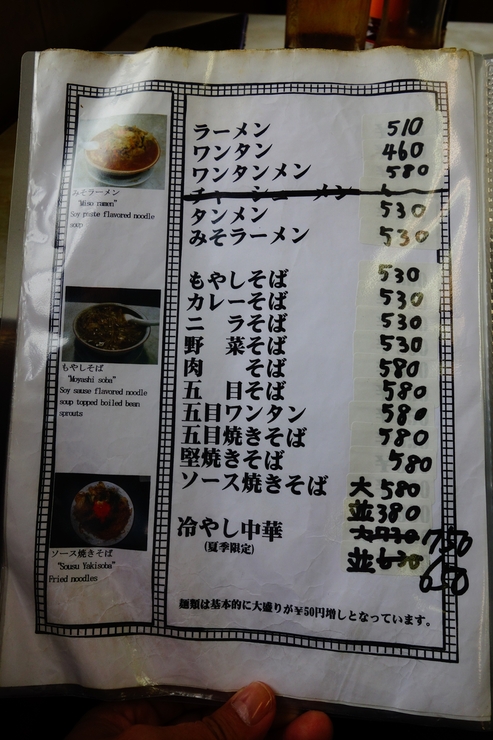 みそラーメン
"Miso ramen"
Soy paste flavored noodle
soup
もやしそば
"Moyashi soba"
Soy sause flavored noodle
soup topped boiled bean
sprouts
ソース焼きそば
"Sousu Yakisoba"
Fried noodles
ラーメン 510
ワンタン 460
ワンタンメン 580
チャーシューメン
タンメン 530
みそラーメン 530
もやしそば 530
カレーそば 530
ニラそば 530
野菜そば 530
肉そば 580
五目そば 580
五目ワンタン 580
五目焼きそば 580
堅焼きそば 580
ソース焼きそば 大 580
並 380
冷やし中華 大 730 750
(夏季限定) 並 630 650
麺類は基本的に大盛りが¥50円増しとなっています。